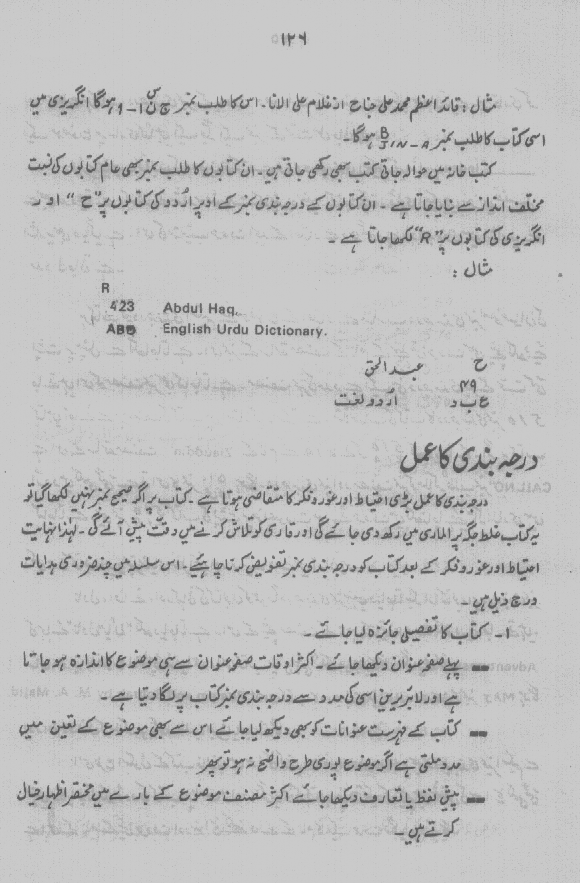 ۱۲۶
مثال: قائد اعظم محمد علی جناح از غلام علی الانا۔ اس کا طلب نمبر ہوگا انگریزی میں
اسی کتاب کا طلب نمبر B/JIN-A ہوگا۔
کتب خانہ میں حوالہ جاتی کتب بھی رکھی جاتی ہیں۔ ان کتابوں کا طلب نمبر بھی عام کتابوں کی نسبت
مختلف انداز سے بنایا جاتا ہے۔ ان کتابوں کے درجہ بندی نمبر کے اوپر اُردو کی کتابوں پر "ح" اور
انگریزی کی کتابوں پر "R" لکھا جاتا ہے۔
مثال:
R
423 Abdul Haq.
ABD English Urdu Dictionary.
ح عبدالحق
۴۹
ع ب د اُردو لغت
درجہ بندی کا عمل
درجہ بندی کا عمل بڑی احتیاط اور غور و فکر کا متقاضی ہوتا ہے۔ کتاب پر اگر صحیح نمبر نہیں لکھا گیا تو
یہ کتاب غلط جگہ پر الماری میں رکھ دی جائے گی اور قاری کو تلاش کرنے میں دقت پیش آئے گی۔ لہٰذا نہایت
احتیاط اور غور و فکر کے بعد کتاب کو درجہ بندی نمبر تفویض کرنا چاہئیے۔ اس سلسلہ میں چند ضروری ہدایات
درج ذیل ہیں۔
۱۔ کتاب کا تفصیلی جائزہ لیا جائے۔
ــ پہلے صفحہ عنوان دیکھا جائے۔ اکثر اوقات صفحہ عنوان سے ہی موضوع کا اندازہ ہو جاتا
ہے اور لائبریرین اسی کی مدد سے درجہ بندی نمبر کتاب پر لگا دیتا ہے۔
ــ کتاب کے فہرست عنوانات کو بھی دیکھ لیا جائے اس سے بھی موضوع کے تعین میں
مدد ملتی ہے اگر موضوع پوری طرح واضح نہ ہو تو پھر
ــ پیش لفظ یا تعارف دیکھا جائے اکثر مصنف موضوع کے بارے میں مختصر اظہار خیال
کرتے ہیں۔